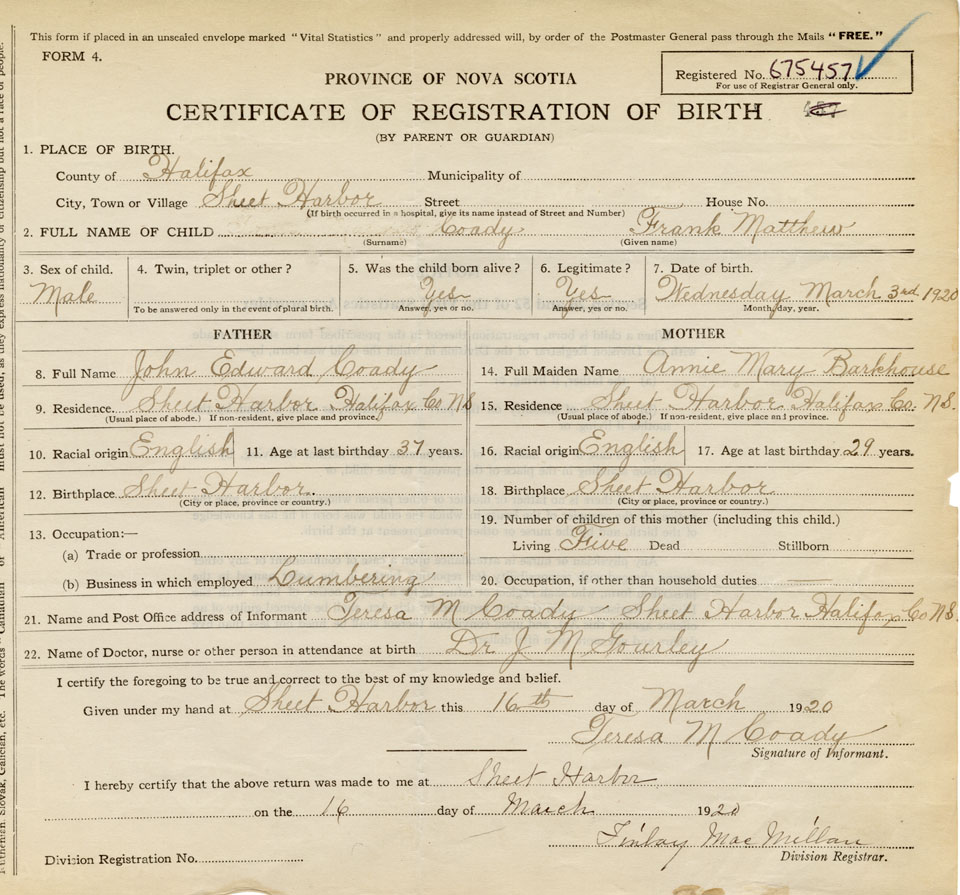 This form if placed in an unsealed envelope marked "Vital Statistics" and properly addressed will, by order of the Postmaster General pass through the Mails "FREE."
FORM 4.
Registered No. 675457
For use of Registrar General only.
PROVINCE OF NOVA SCOTIA
CERTIFICATE OF REGISTRATION OF BIRTH
(BY PARENT OR GUARDIAN)
1. PLACE OF BIRTH.
County of Halifax Municipality of
City, Town or Village Sheet Harbor Street House No.
(If birth occurred in a hospital, give its name instead of Street and Number)
2. FULL NAME OF CHILD Coady Frank Matthew
(Surname) (Given name)
3. Sex of child. 4. Twin, triplet or other? 5. Was the child born alive? 6. Legitimate? 7. Date of birth.
Male Yes Yes Wednesday March 3rd 1920
To be answered only in the event of plural birth. Answer, yes or no. Answer, yes or no. Month, day, year.
FATHER MOTHER
8. Full Name John Edward Coady 14. Full Maiden Name Annie Mary Barkhouse
9. Residence. Sheet Harbor Halifax Co NS 15. Residence Sheet Harbor Halifax Co. N.S.
(Usual place of abode.) If non-resident, give place and province.) (Usual place of abode.) If non-resident, give place and province.
10. Racial origin English 11. Age at last birthday 37 years. 16. Racial origin English 17. Age at last birthday 29 years.
12. Birthplace Sheet Harbor. 18. Birthplace Sheet Harbor
(City or place, province or country.) (City or place, province or country.)
13. Occupation:— 19. Number of children of this mother (including this child.)
(a) Trade or profession Living Five Dead Stillborn
(b) Business in which employed Lumbering 20. Occupation, if other than household duties —
21. Name and Post Office address of Informant Teresa M Coady Sheet Harbor Halifax Co N.S.
22. Name of Doctor, nurse or other person in attendance at birth Dr J M Gourley
I certify the foregoing to be true and correct to the best of my knowledge and belief.
Given under my hand at Sheet Harbor this 16th day of March 1920
Teresa M Coady
Signature of Informant.
I hereby certify that the above return was made to me at Sheet Harbor
on the 16 day of March 1920
Finlay MacMillan
Division Registrar.
Division Registration No.